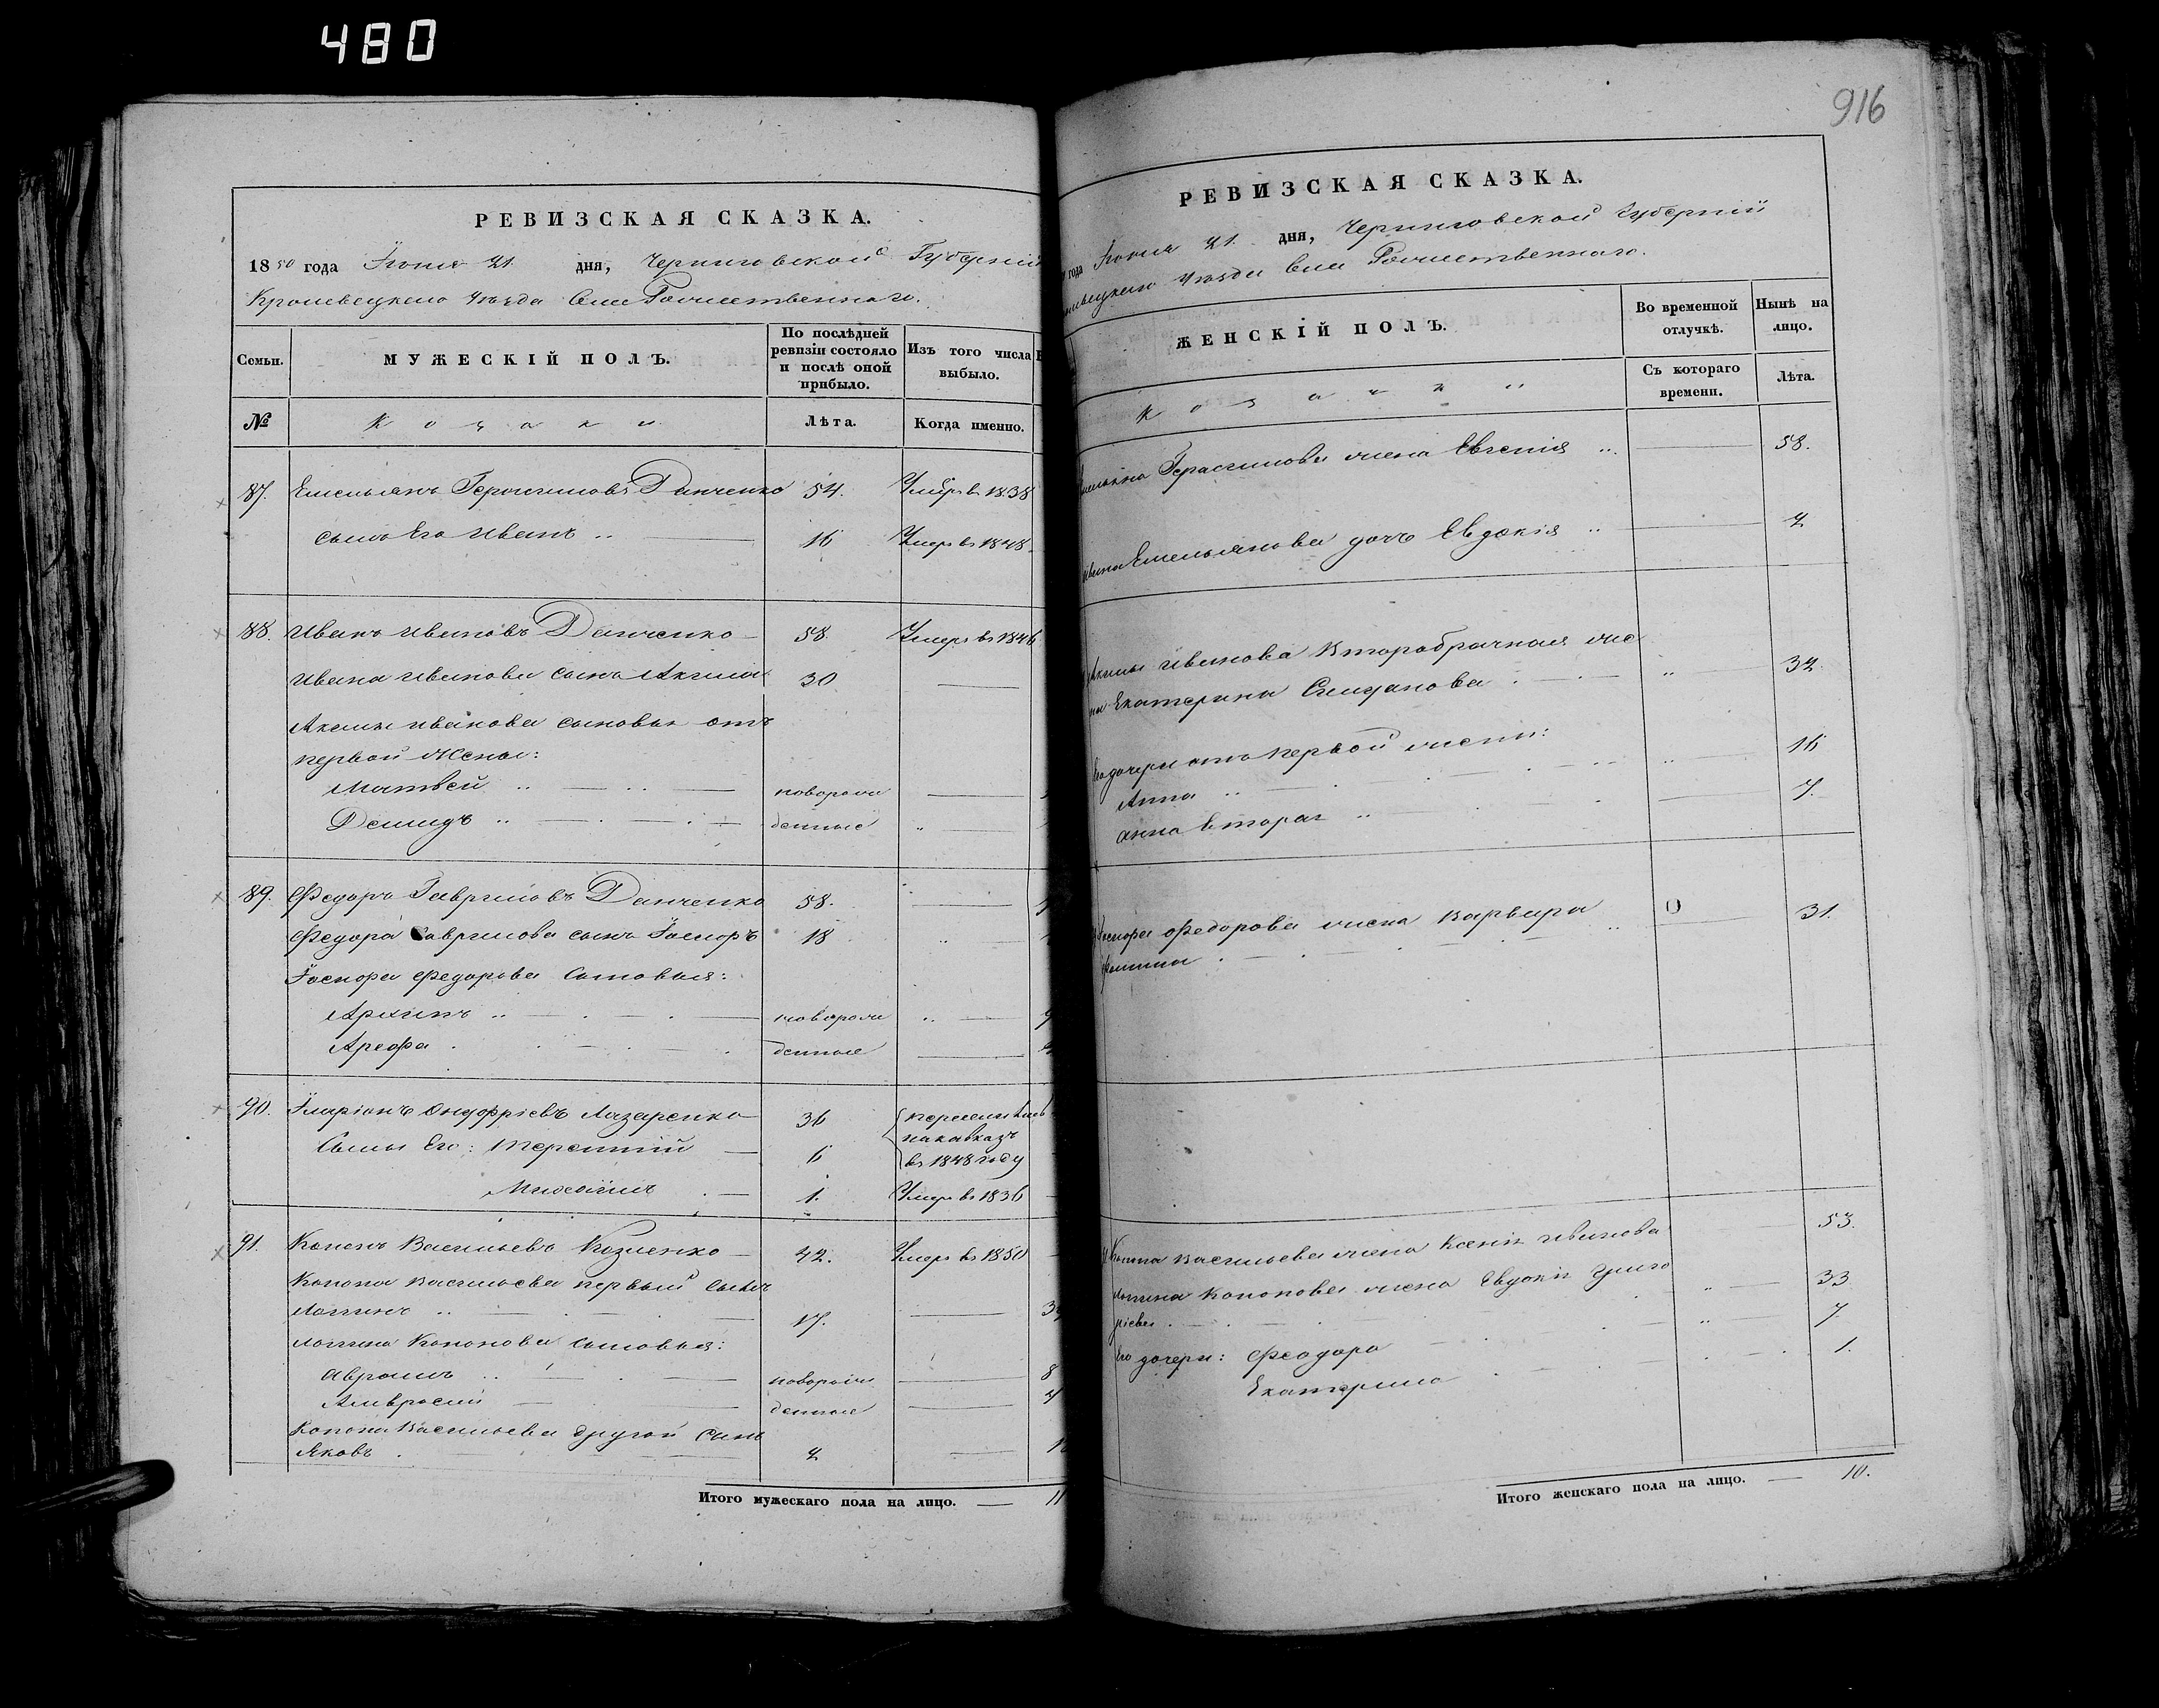 480
РЕВИЗСКАЯ СКАЗКА.
1850 года Іюня 21. дня, Черниговской Губерніи
Кролевецкаго Уѣзда Села Рожественнаго.
Семьи.
МУЖЕСКІЙ ПОЛЪ.
По послѣдней ревизіи состояло и послѣ оной прибыло.
Изъ того числа выбыло.
№
Козаки.
Лѣта.
Когда именно.
87. Емельянъ Герасимовъ Данченко 54. Умеръ въ 1838
сынъ Его Иванъ 16 Умеръ въ 1848
88. Иванъ Ивановъ Данченко 58. Умеръ въ 1846
Ивана Иванова сынъ Акгила 30
Иванова сыновья отъ
первой жены:
Матвей новорож
Демидъ денные
89. Федоръ Гавриловъ Данченко 58.
Федора Гаврилова сынъ Іосифъ 18
Федорова сыновья:
Архипъ новорож
Арефа денные
90. Иларіонъ Онуфріевъ Лазаренко 36
на кавказъ
Сыны Его: Терентій 6 въ 1848 году
Михаилъ 1. Умеръ въ 1836
91. Кононъ Васильевъ Козленко 42. Умеръ въ 1850
Конона Васильева первый сынъ
Логинъ 17.
Логина Кононова сыновья:
Аврамъ новорож 8
Амвросій денные
Конона Васильева другой сынъ
Яковъ 2
Итого мужескаго пола на лицо. — 11
916
РЕВИЗСКАЯ СКАЗКА.
года Іюня 21. дня, Черниговской Губерніи
Уѣзда Села Рожественнаго.
ЖЕНСКІЙ ПОЛЪ.
Во временной отлучкѣ.
Нынѣ на лицо.
Съ котораго времени.
Лѣта.
Герасимова жена Евгенія 58.
Емельянова дочь Евдокія 2
Иванова второбрачная же
на Екатерина 32.
Его дочери отъ первой жены:
Анна 16
Анна вторая 7.
Федорова жена Варвара 31.
Васильева жена Ксенія Иванова 53.
Кононова жена Евдокія Григо
ріева 33
Его дочери: Феодора 7.
Екатерина 1.
Итого женскаго пола на лицо. — 10.